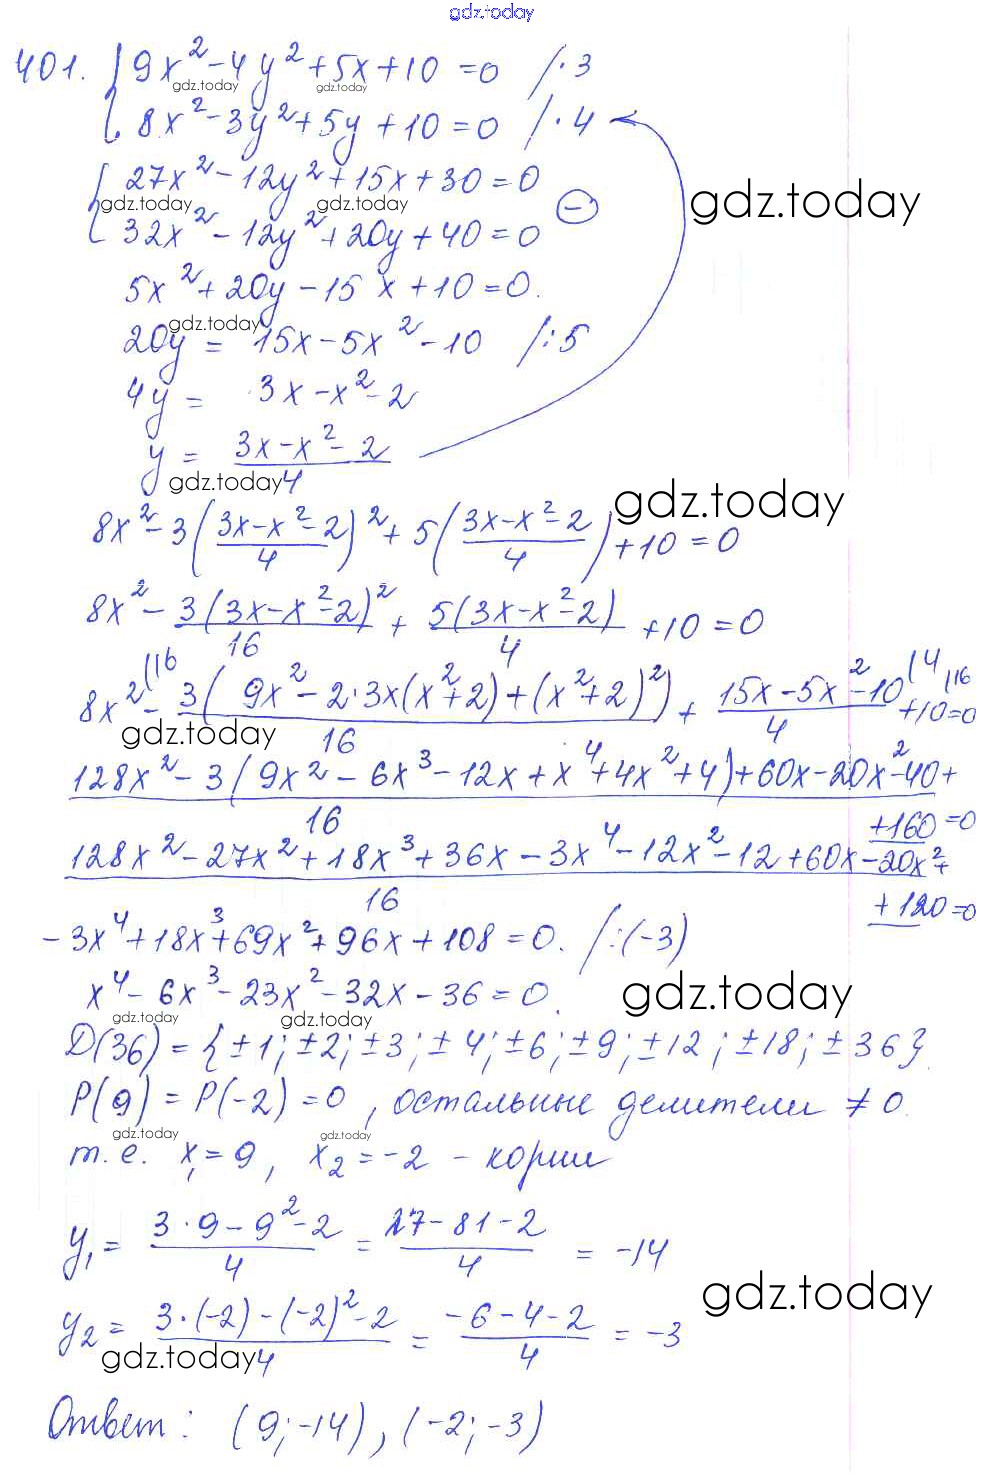 gdz.today
401. { 9x² - 4y² + 5x + 10 = 0 /·3
8x² - 3y² + 5y + 10 = 0 /·4
{ 27x² - 12y² + 15x + 30 = 0
gdz.today gdz.today gdz.today
32x² - 12y² + 20y + 40 = 0 (-)
5x² + 20y - 15x + 10 = 0.
gdz.today
20y = 15x - 5x² - 10 /:5
4y = 3x - x² - 2
y = (3x - x² - 2)/4
gdz.today gdz.today
8x² - 3((3x - x² - 2)/4)² + 5((3x - x² - 2)/4) + 10 = 0
8x² - 3(3x - x² - 2)²/16 + 5(3x - x² - 2)/4 + 10 = 0
8x² (16 - 3(9x² - 2·3x(x² + 2) + (x² + 2)²)/16 + (15x - 5x² - 10)/4 (4 + 10 = 0 (16
gdz.today
128x² - 3(9x² - 6x³ - 12x + x⁴ + 4x² + 4) + 60x - 20x² - 40 +
16 + 160 = 0
128x² - 27x² + 18x³ + 36x - 3x⁴ - 12x² - 12 + 60x - 20x² +
16 + 120 = 0
- 3x⁴ + 18x³ + 69x² + 96x + 108 = 0. /:(-3)
x⁴ - 6x³ - 23x² - 32x - 36 = 0.
gdz.today gdz.today gdz.today
D(36) = {±1; ±2; ±3; ±4; ±6; ±9; ±12; ±18; ±36}
P(9) = P(-2) = 0, остальные делители ≠ 0.
gdz.today gdz.today
т.е. x₁ = 9, x₂ = -2 - корни
y₁ = (3·9 - 9² - 2)/4 = (27 - 81 - 2)/4 = -14
gdz.today
y₂ = (3·(-2) - (-2)² - 2)/4 = (-6 - 4 - 2)/4 = -3
gdz.today
Ответ: (9; -14), (-2; -3)